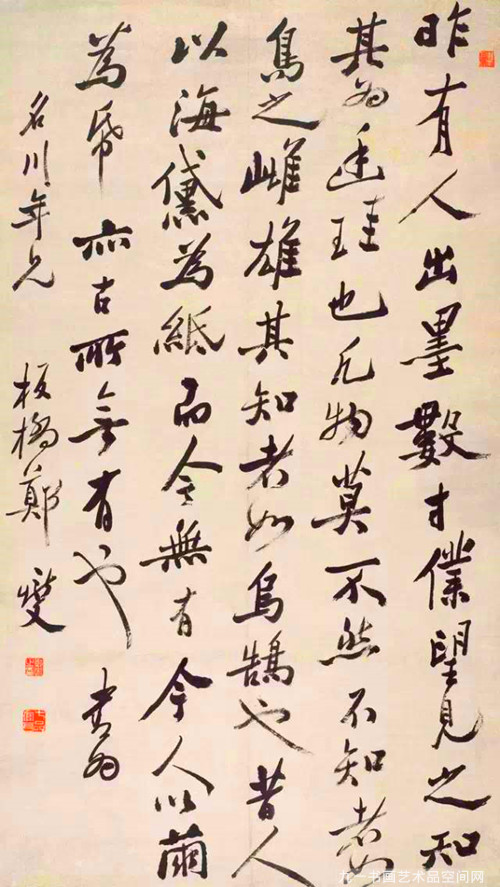 昨有人出墨數寸僕望見之知
其為廷珪也凡物莫不然不知者如
烏之雌雄其知者如烏鵠也昔人
以海黛為紙而今無有今人以繭
為帋亦古所無有也 書為
名川年兄 板橋鄭燮
九一书画艺术品空间网